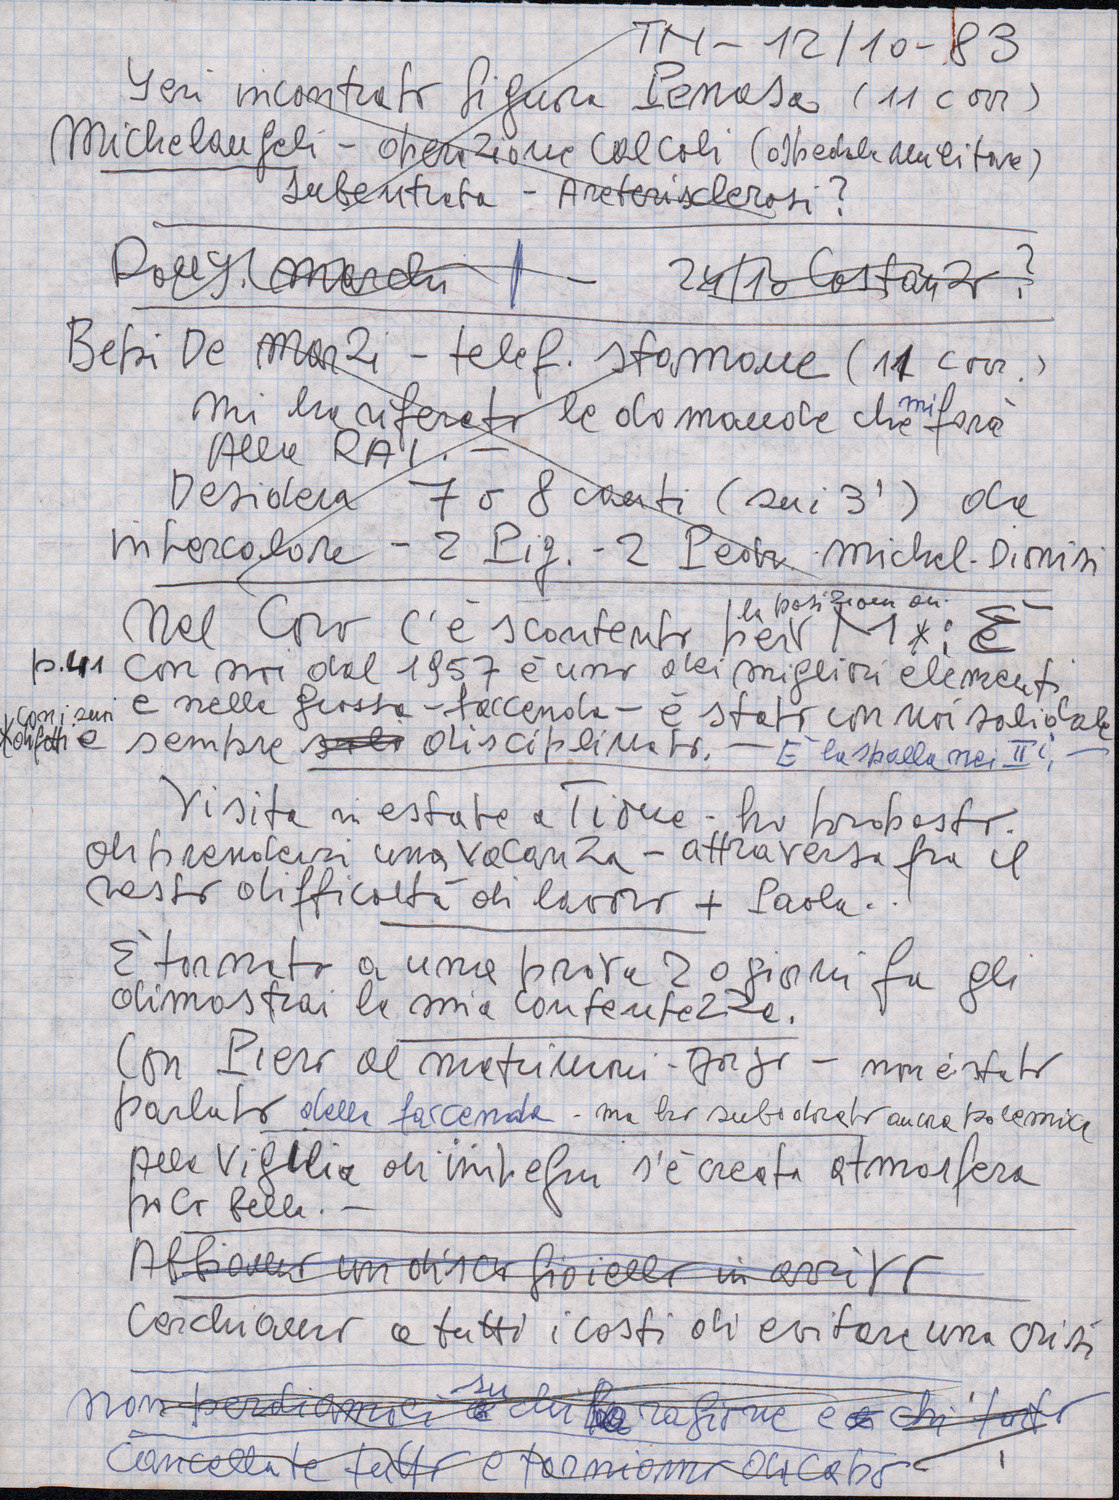 TN - 12/10-83
Yeri incontrato figura Penasa (11 corr)
Michelangeli - operazione calcoli (ospedale militare)
subentrata - Areterisclerosi?
24/10 Costanzo?
Bepi De Marzi - telef. stamane (11 corr.)
mi ha riferato le domande che mi farà
Alla RAI. -
Desidera 7 o 8 canti (sui 3') da
intercalare - 2 Pig. - 2 Pedr. Michel. Dionisi
la posizione di
Nel Coro c'è scontento per M*: È
p.41 con noi dal 1957 è uno dei migliori elementi
e nella grossa - faccenda - è stato con noi solidale
con i suoi
*difetti e sempre solo disciplinato. - È la spalla nei II i; -
Visita in estate a Tione - ho proposto.
di prendersi una vacanza - attraversa fra il
resto difficoltà di lavoro + Paola..
È tornato a una prova 20 giorni fa gli
dimostrai la mia contentezza.
Con Piero al matrimoni - - non è stato
parlato della faccenda - ma ho subodorato ancora polemica
Alla Vigilia di impegni s'è creata atmosfera
poco bella. -
Abbiamo un disco gioiello in arrivo
Cerchiamo a tutti i costi di evitare una crisi
non perdiamoci su chi ha ragione e chi torto
Cancellate tutto e torniamo da capo -